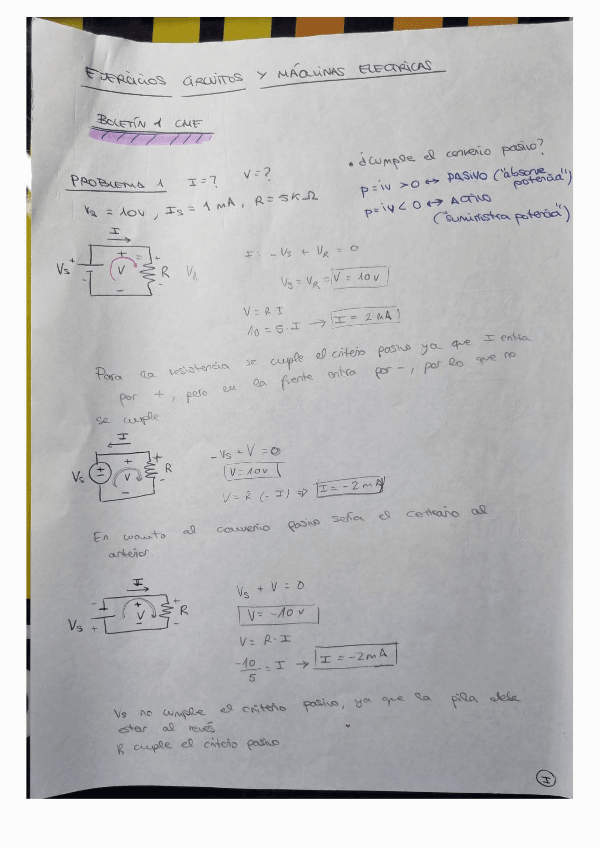 EJERCICIOS CIRCUITOS Y MÁQUINAS ELECTRICAS
BOLETÍN 1 CME
PROBLEMA 1 I=? V=?
Vs = 10V, Is = 1 mA, R = 5KΩ
• ¿Cumple el convenio pasivo?
p=iv >0 ↔ PASIVO ("absorve potencia")
p=iv <0 ↔ ACTIVO
("suministra potencia")
I
Vs + - + V - + - R VR
I: -Vs + VR = 0
Vs = VR = V = 10V
V = R·I
10 = 5·I → I = 2mA
Para la resistencia se cumple el criterio pasivo ya que I entra
por +, pero en la fuente entra por -, por lo que no
se cumple
I
Vs + V - + - R
-Vs + V = 0
V = 10V
V = R (-I) ⇒ I = -2mA
En cuanto al convenio pasivo sería el contrario al
anterior
I
Vs - + + V - + - R
Vs + V = 0
V = -10V
V = R·I
-10/5 = I → I = -2mA
Vs no cumple el criterio pasivo, ya que la pila debe
estar al revés
R cumple el criterio pasivo
1